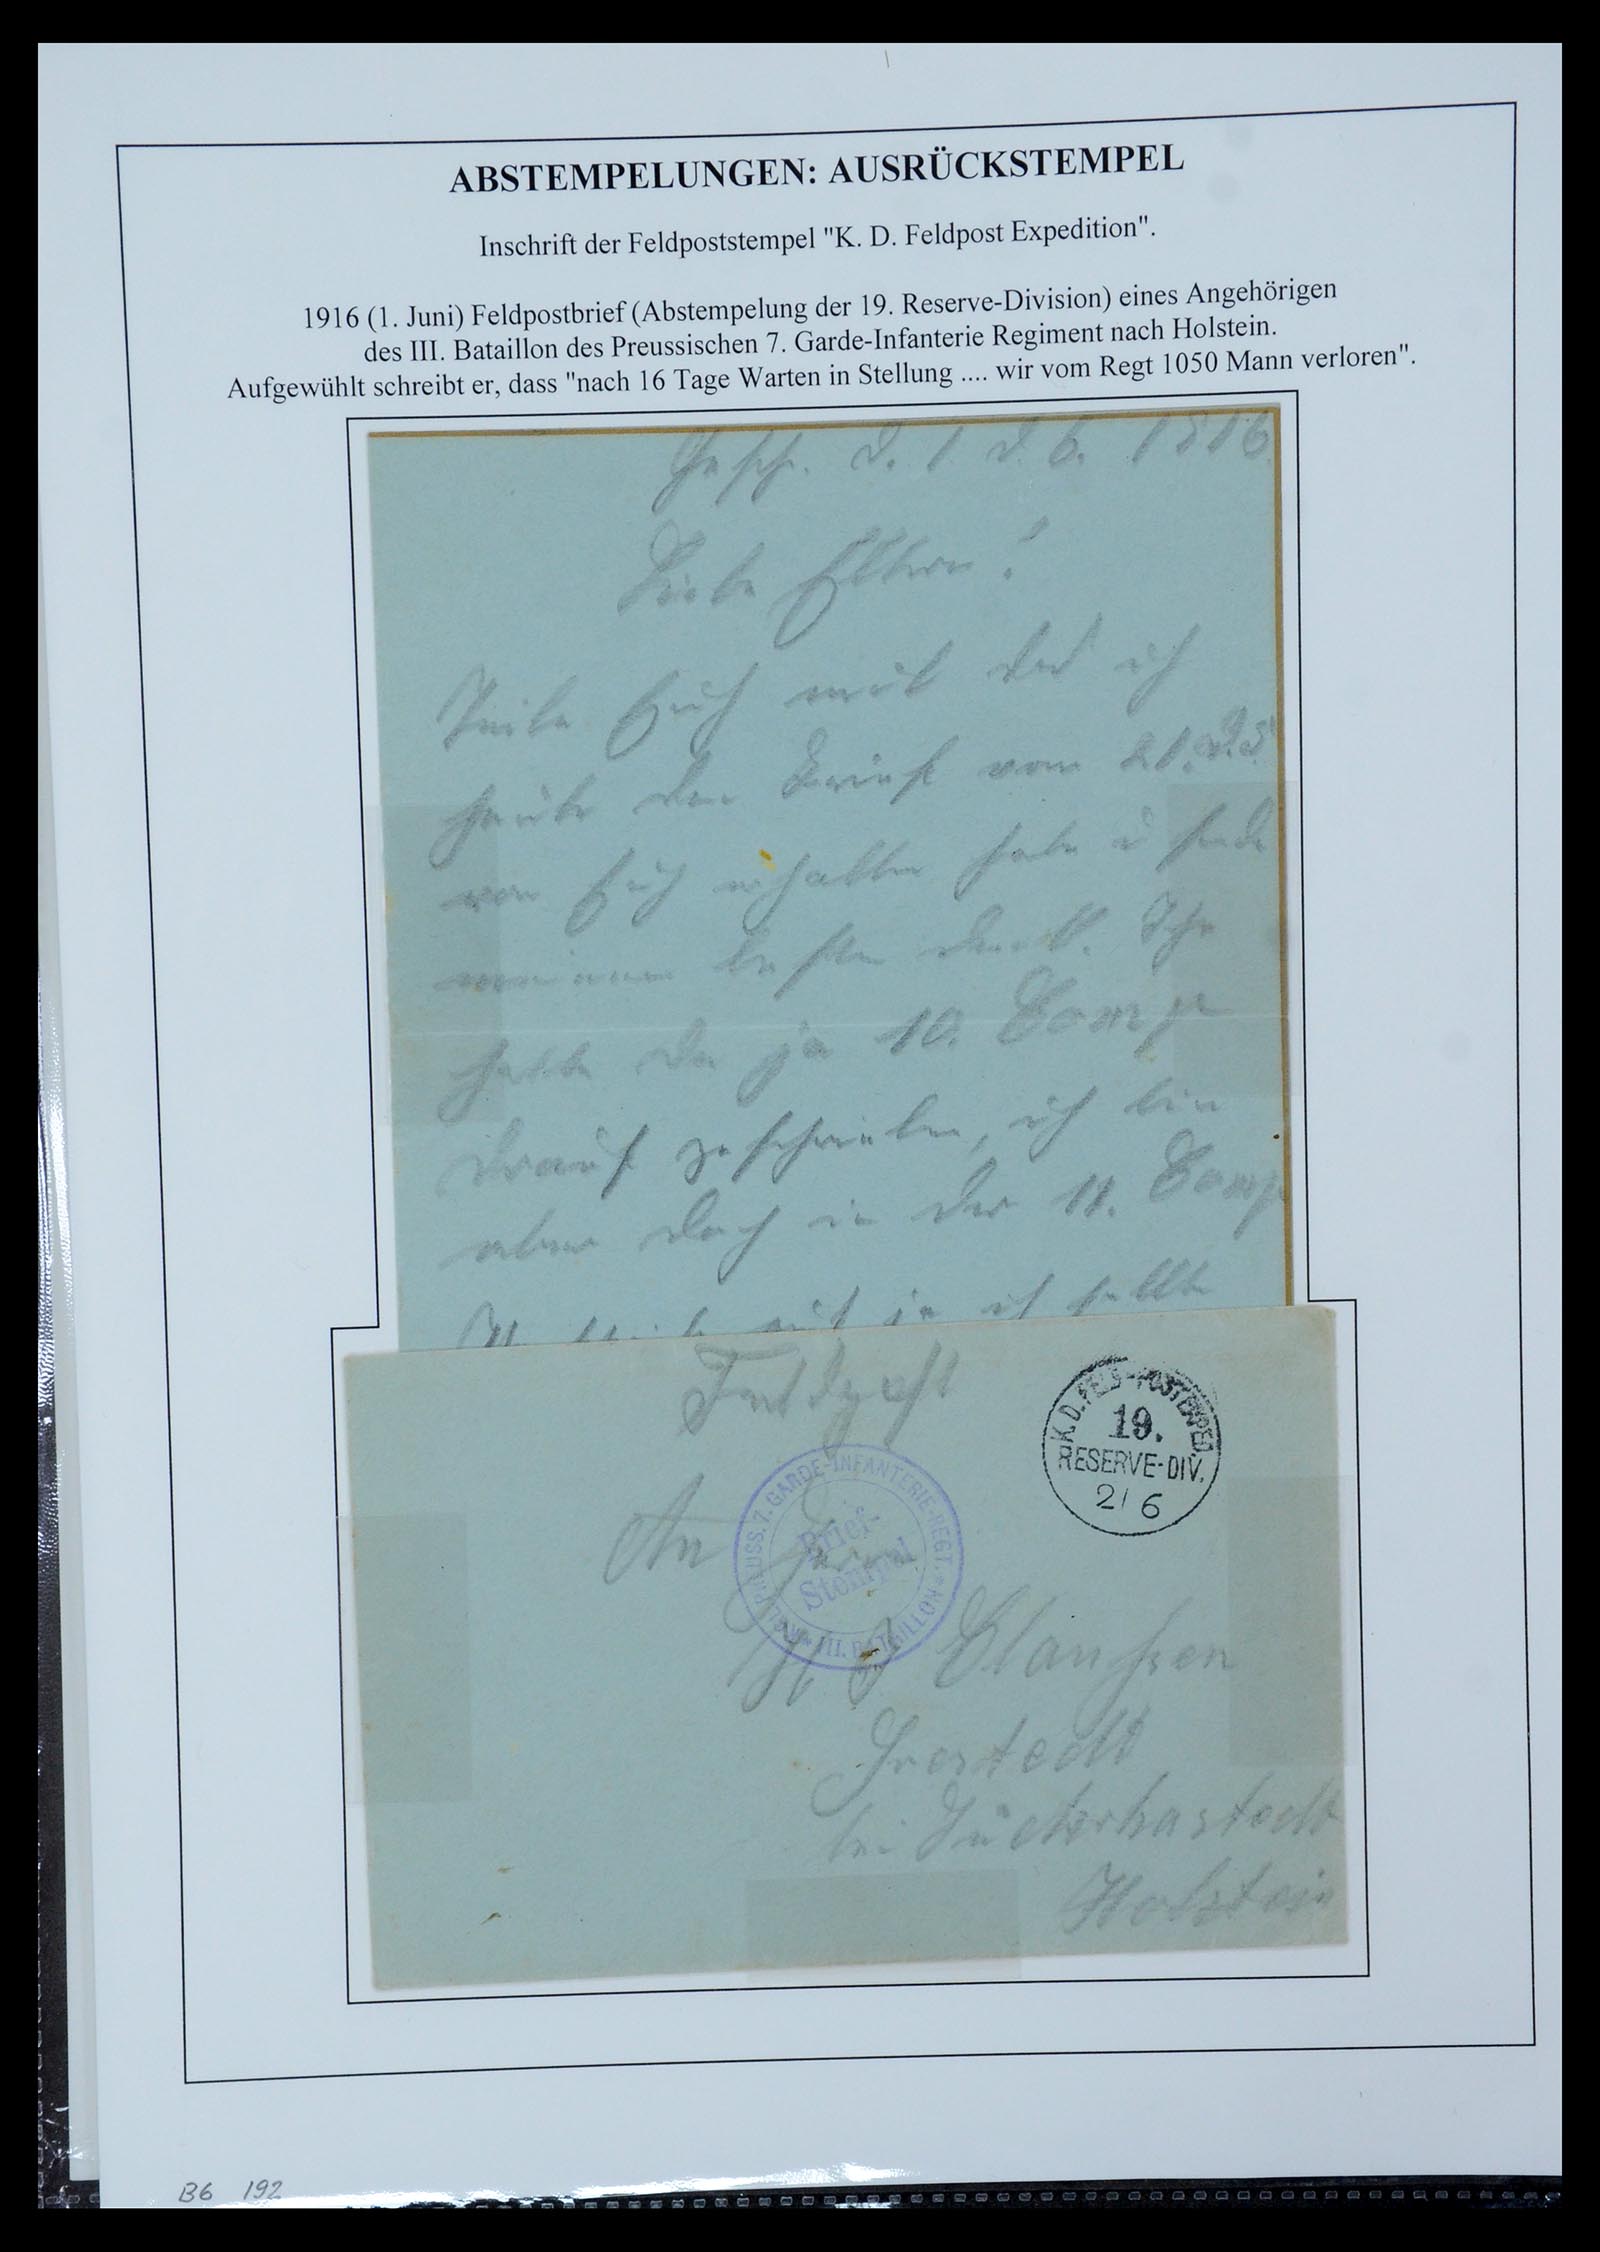 ABSTEMPELUNGEN: AUSRÜCKSTEMPEL
Inschrift der Feldpoststempel "K. D. Feldpost Expedition".
1916 (1. Juni) Feldpostbrief (Abstempelung der 19. Reserve-Division) eines Angehörigen
des III. Bataillon des Preussischen 7. Garde-Infanterie Regiment nach Holstein.
Aufgewühlt schreibt er, dass "nach 16 Tage Warten in Stellung .... wir vom Regt 1050 Mann verloren".
Gesch. d. 1. d. 6. 1916.
Liebe Eltern!
Teile Euch mit das ich
heute den Brief vom 21. d. 5.
von Euch erhalten habe u sende
meinen besten Dank. Ihr
hattet da ja 10. Comp
drauf geschrieben, ich bin
aber doch in der 11. Comp
ich sollte
Feldpost
K.D. FELD-POSTEXPED.
19.
RESERVE-DIV.
2/6
KGL. PREUSS. 7. GARDE-INFANTERIE-REGT.
III. BATAILLON
Brief-
Stempel
An Herrn
Claussen
bei Süderhastedt
Holstein
B6 192